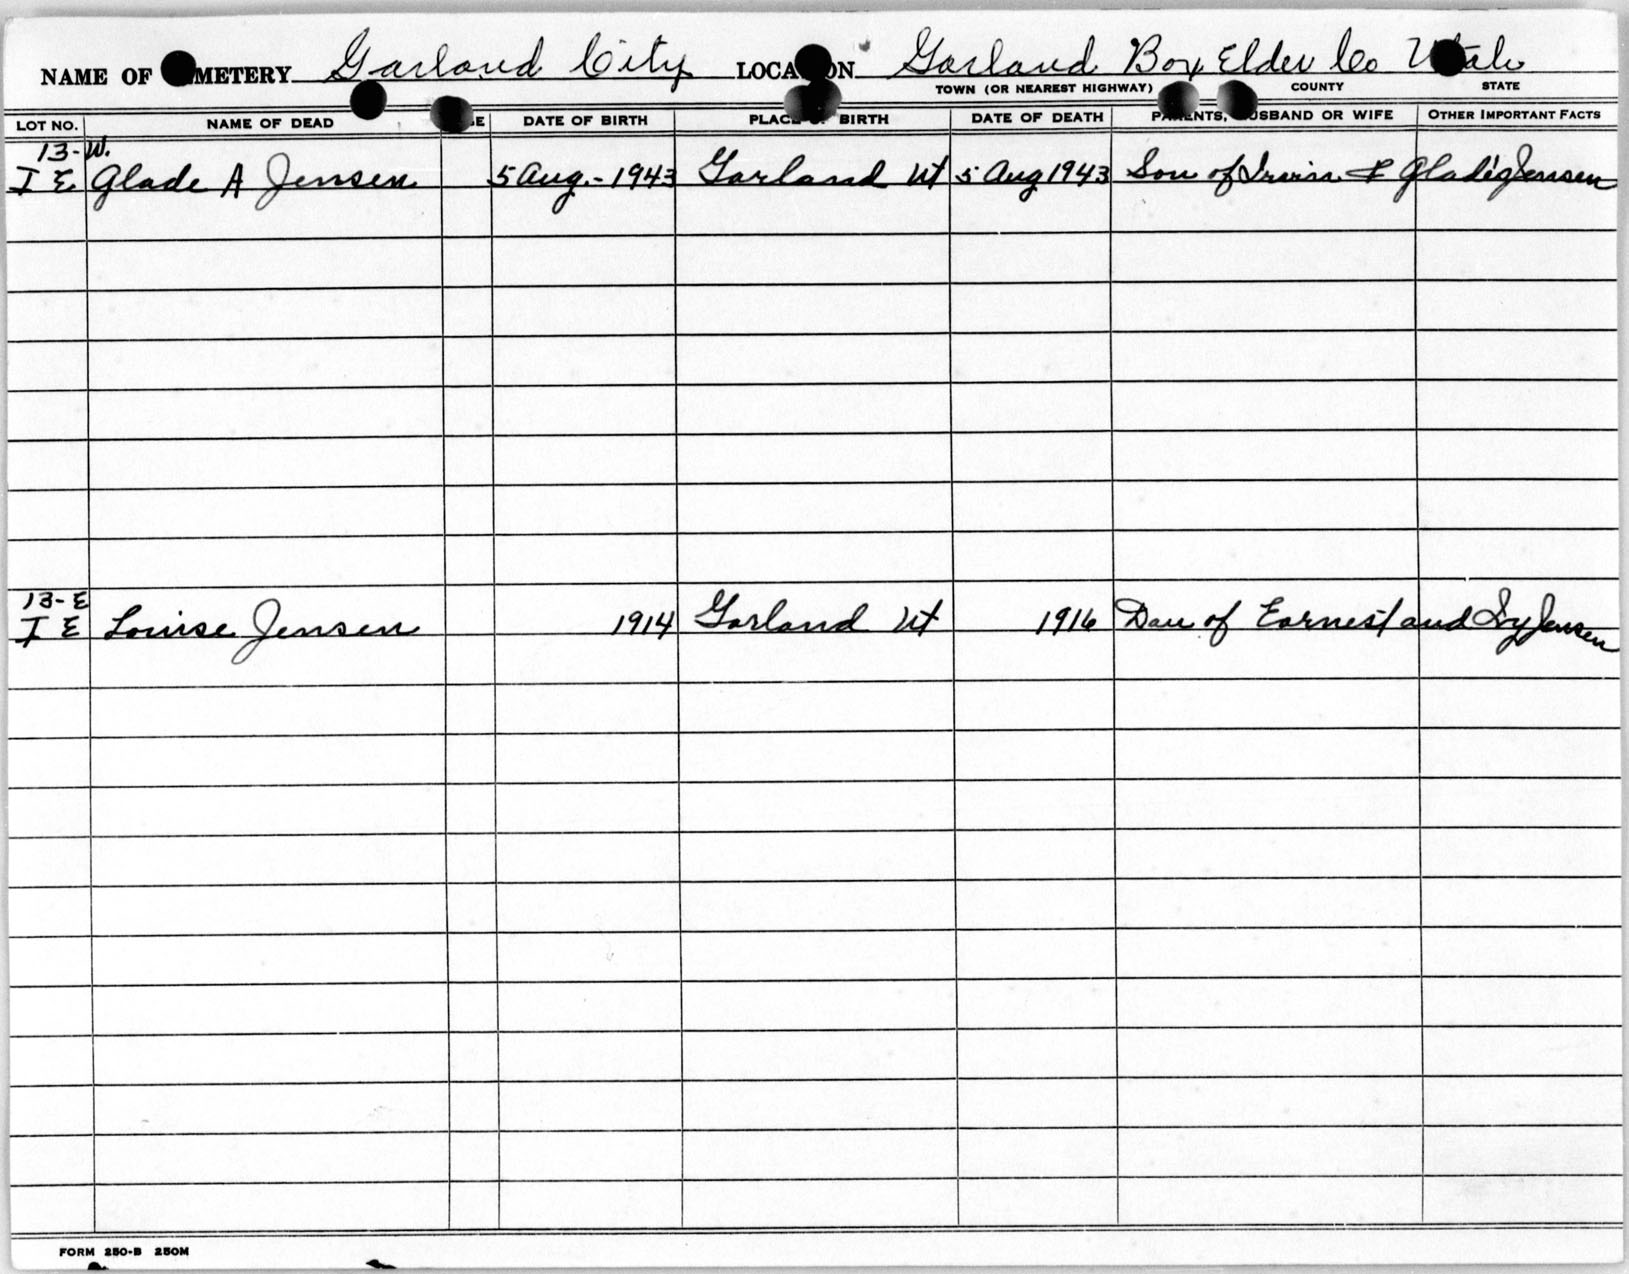 NAME OF CEMETERY Garland City LOCATION Garland Box Elder Co Utah
TOWN (OR NEAREST HIGHWAY) COUNTY STATE
LOT NO. NAME OF DEAD AGE DATE OF BIRTH PLACE OF BIRTH DATE OF DEATH PARENTS, HUSBAND OR WIFE OTHER IMPORTANT FACTS
13-W.
I E Glade A Jensen 5 Aug.-1943 Garland Ut 5 Aug 1943 Son of Irvin & Jensen
13-E
I E Louise Jensen 1914 Garland Ut 1916 Dau of Earnest and Ivy Jensen
FORM 250-B 250M